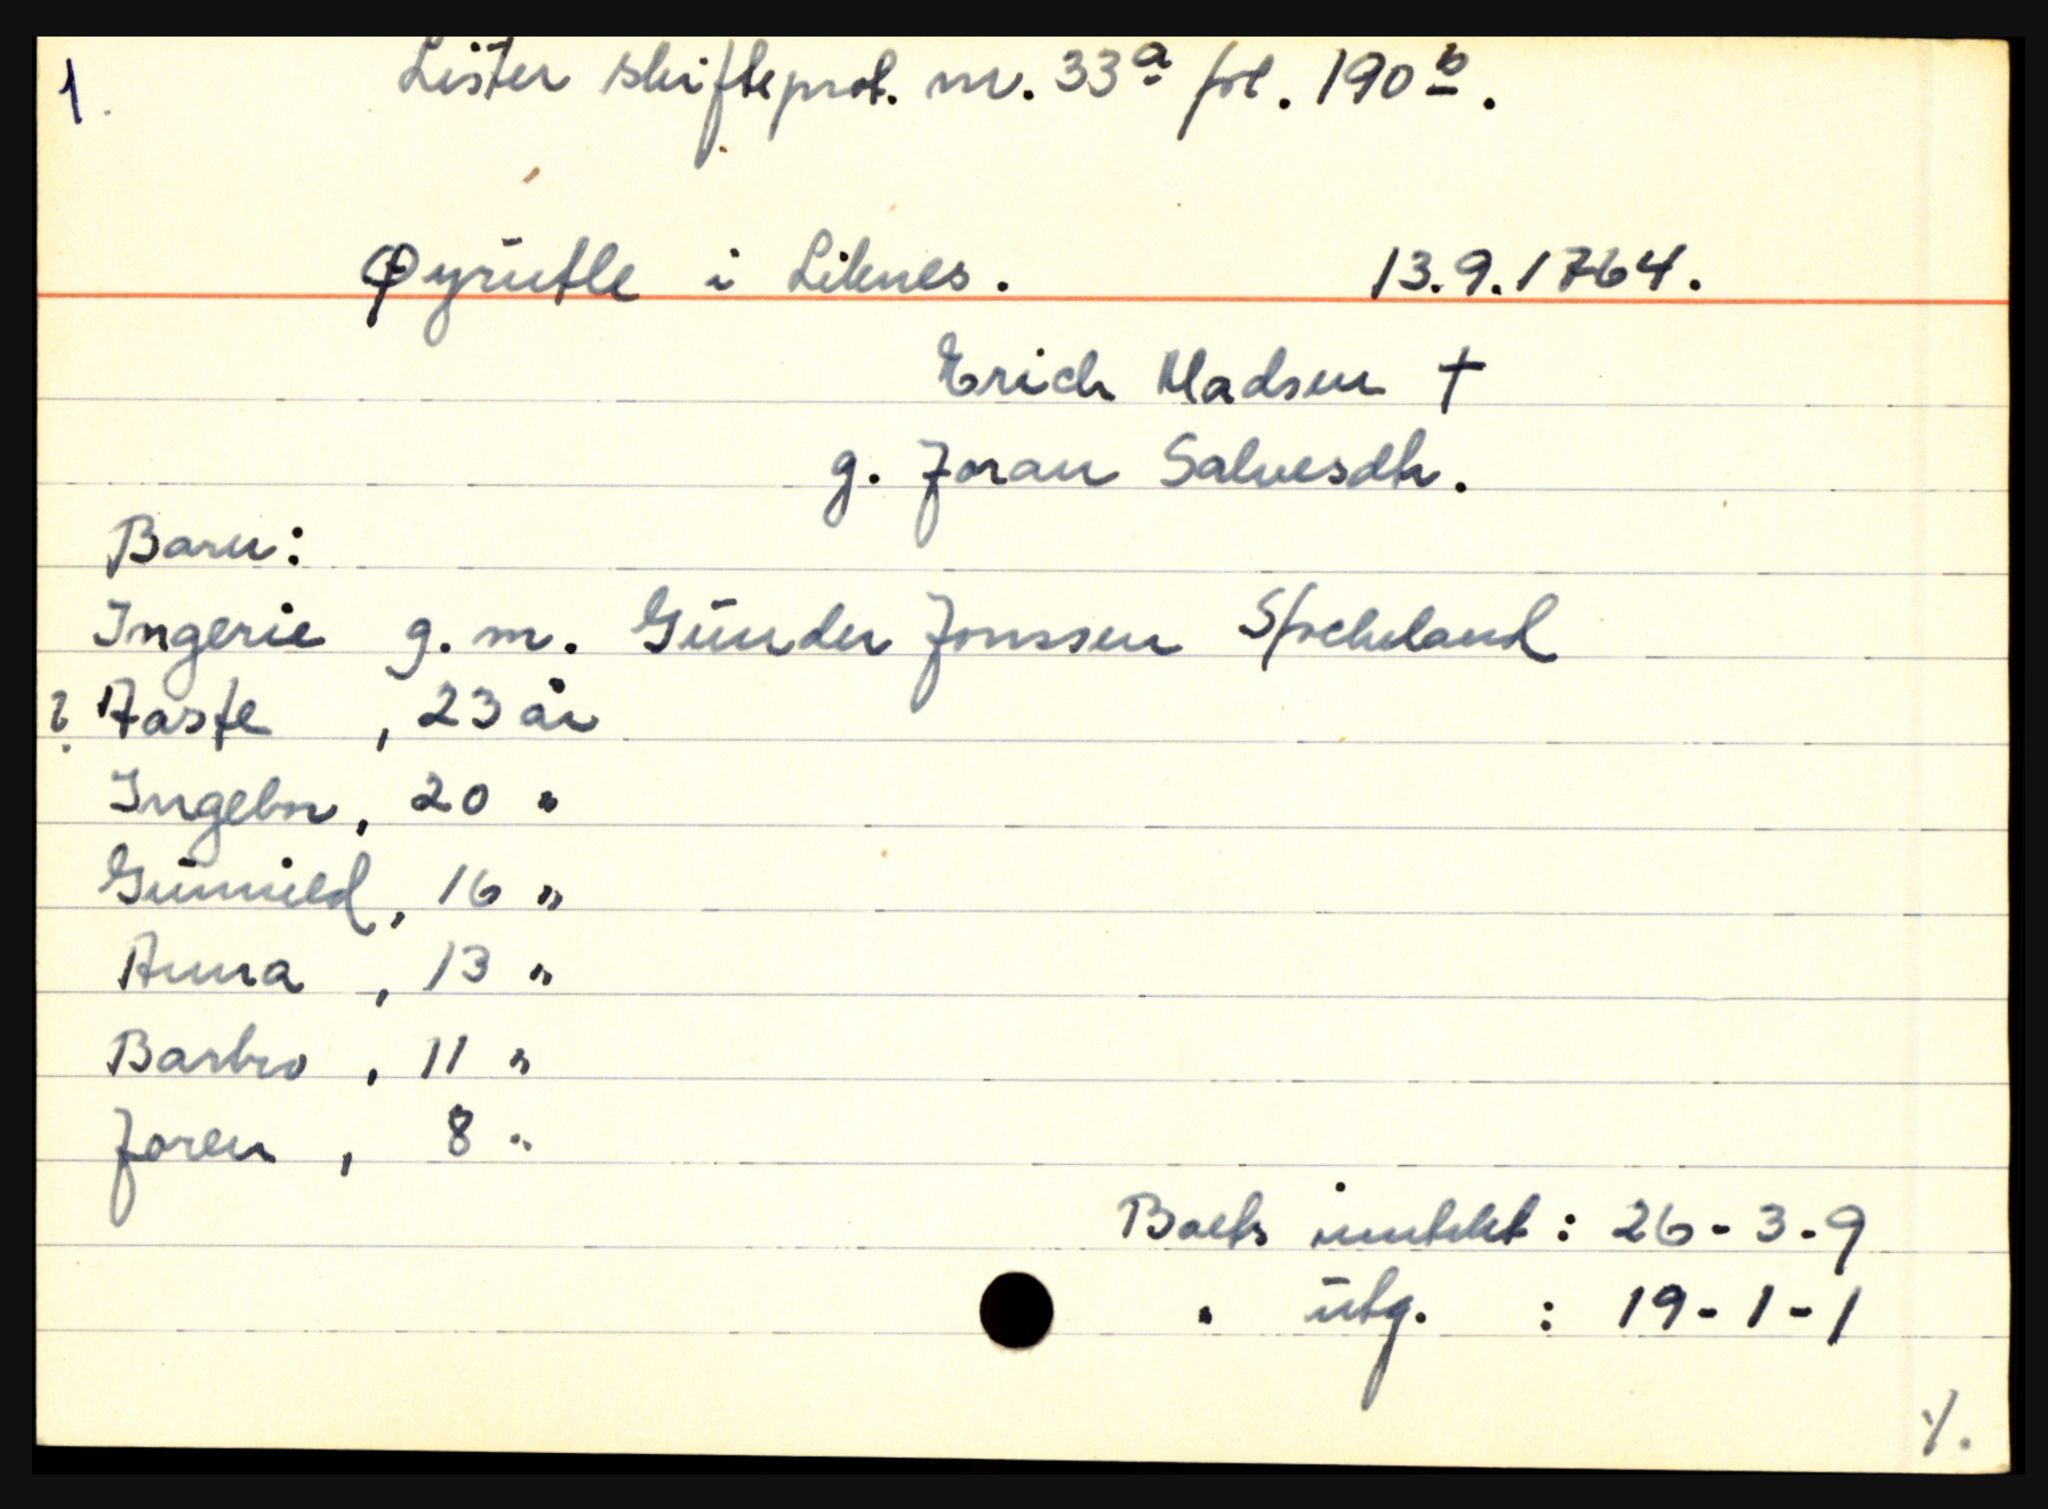 1. Lister skifteprot. nr. 33a fol. 190b.
Øyrütle i Liknes. 13.9.1764.
Erich Madsen †
g. Joran Salvesdtr.
Barn:
Ingerie g. m. Günder Jonssen
? Aaste , 23 år
Ingebor , 20 "
Günnild , 16 "
Anna , 13 "
Barbro , 11 "
Joren , 8 "
Boets inntekt : 26 - 3 - 9
" ütg. : 19 - 1 - 1
./.